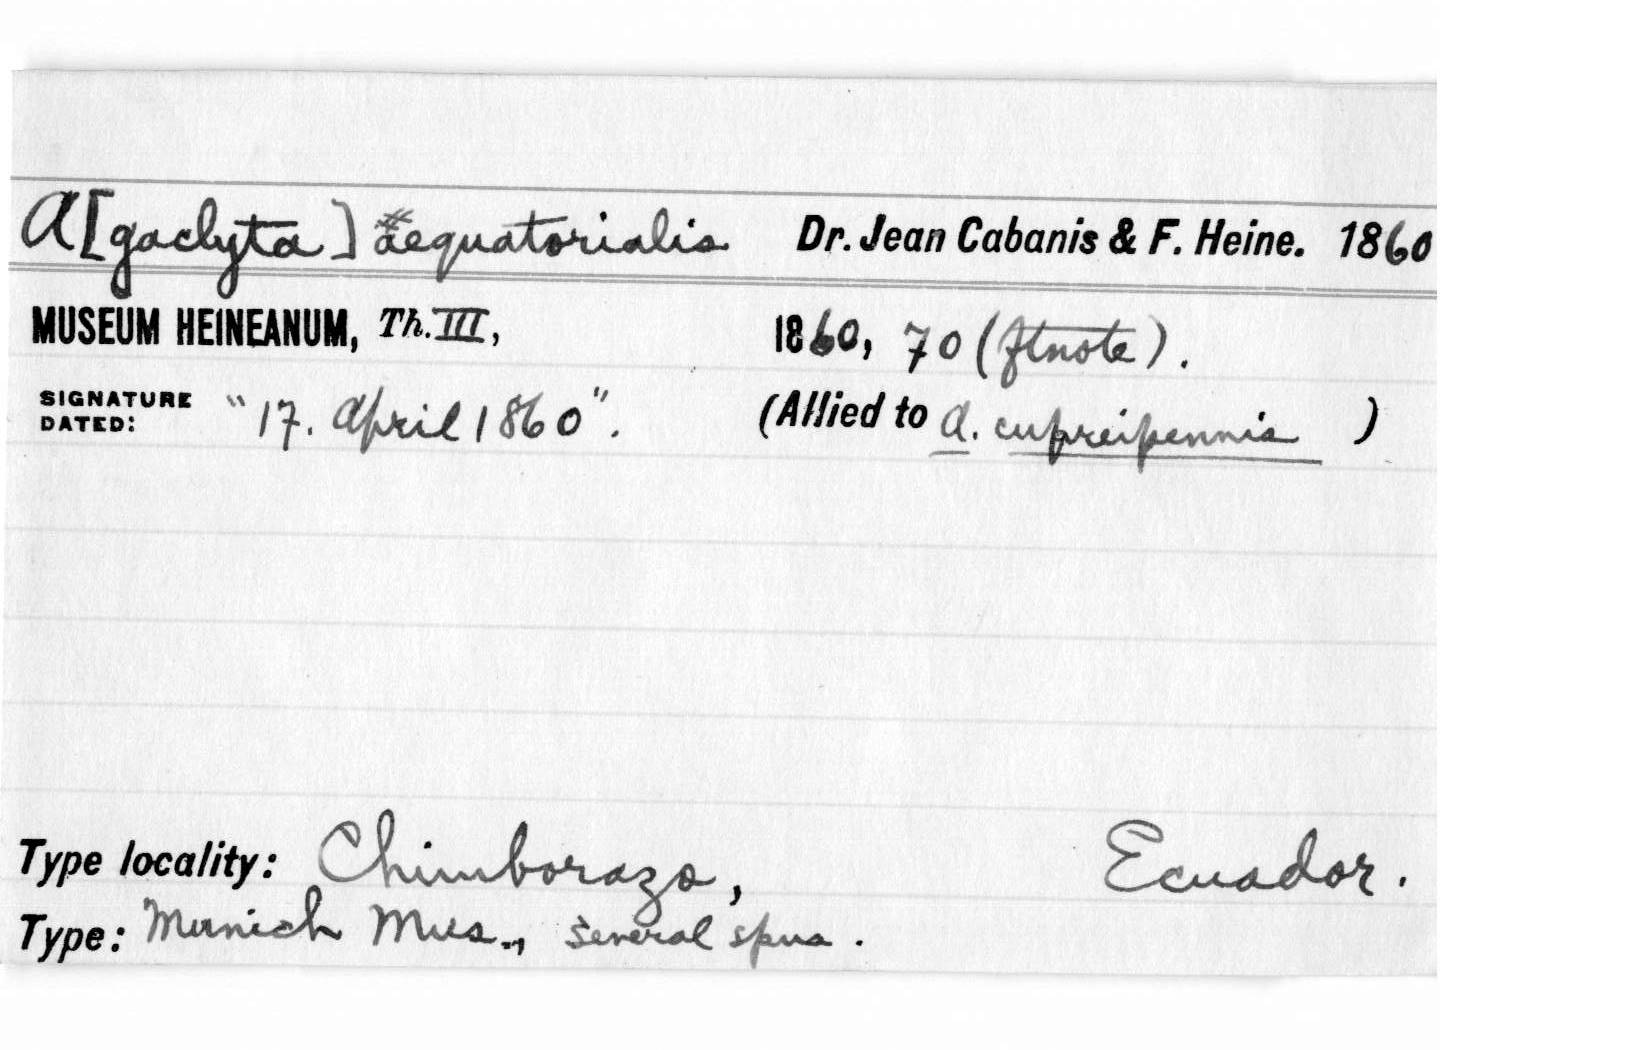 A[gaclyta] aequatorialis Dr. Jean Cabanis & F. Heine. 1860
MUSEUM HEINEANUM, Th. III, 1860, 70 (ftnote).
SIGNATURE DATED: "17. April 1860". (Allied to A. cupreipennis )
Type locality: Chimborazo, Ecuador.
Type: Munich Mus., several spns.